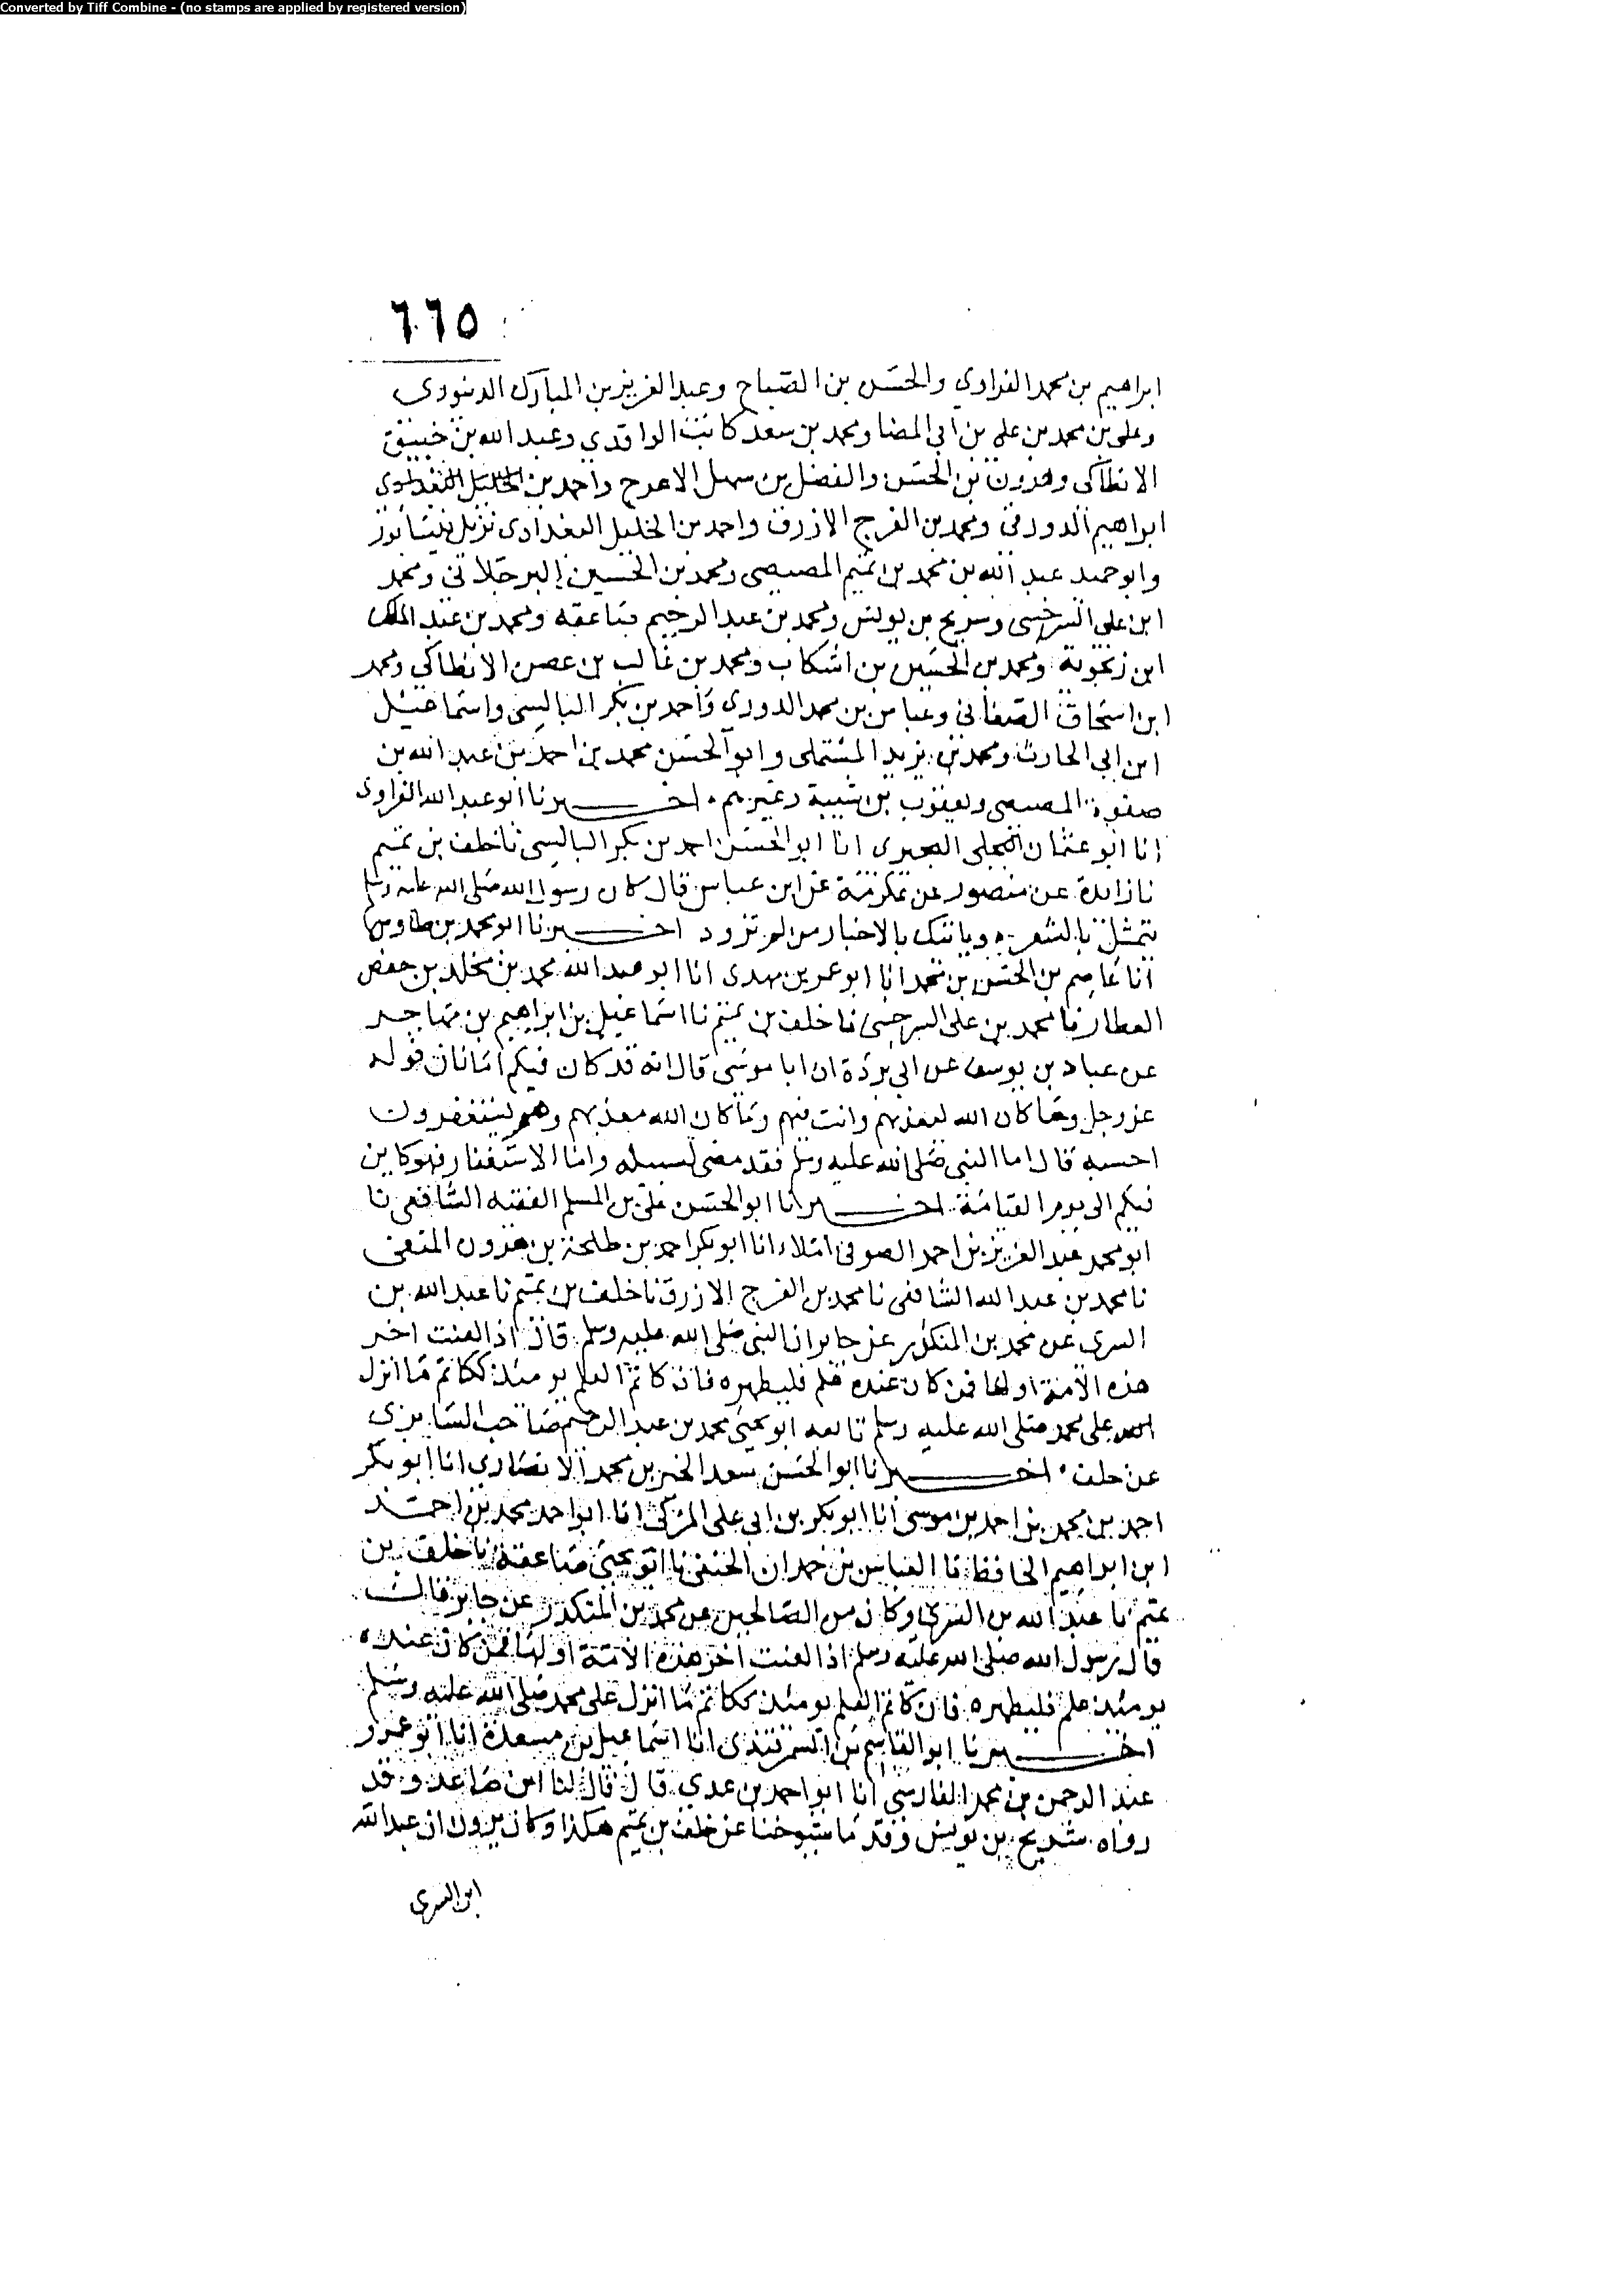 Converted by Tiff Combine - (no stamps are applied by registered version)
٦٦٥
ابراهيم بن محمد الفراوي والحسن بن الصباح وعبد العزيز بن المبارك الدينوري
وعلى بن محمد بن علي بن ابي المضا ومحمد بن سعد كاتب الواقدي وعبد الله بن خبيق
الانطاكى وهرون بن الحسن والفضل بن سهل الاعرج واحمد بن
ابراهيم الدورقي ومحمد بن الفرج الازرق واحمد بن الخليل البغدادى نزيل نيسابور
وابو حميد عبد الله بن محمد بن تميم المصيصى ومحمد بن الحسين البرجلاني ومحمد
ابن على السرخسى وسريج بن يونس ومحمد بن عبد الرحيم صاعقه ومحمد بن عبد الملك
ابن زنجوية ومحمد بن الحسين بن اشكاب ومحمد بن غالب بن غصن الانطاكي ومحمد
ابن اسحاق الصغاني وعباس بن محمد الدوري واحمد بن بكر البالسى واسماعيل
ابن ابي الحارث ومحمد بن يزيد المستملى وابو الحسن محمد بن احمد بن عبد الله بن
صفوة المصيصى ويعقوب بن شيبة وغيرهم اخبرنا ابو عبد الله الفراوى
انا ابو عثمان البحيرى انا ابو الحسن احمد بن بكر البالسى نا خلف بن تميم
نا زايدة عن منصور عن عكرمة عن ابن عباس قال كان رسول الله صلى الله عليه وسلم
يتمثل بالشعر وياتيك بالاخبار من لم تزود اخبرنا ابو محمد بن طاوس
انا عاصم بن الحسن بن محمد انا ابو عمر بن مهدى انا ابو عبد الله محمد بن مخلد بن حفص
العطار نا محمد بن على السرخسى نا خلف بن تميم نا اسماعيل بن ابراهيم بن مهاجر
عن عباد بن يوسف عن ابي بردة ان ابا موسى قال انه قد كان فيكم امانان قوله
عز وجل وما كان الله ليعذبهم وانت فيهم وما كان الله معذبهم وهم يستغفرون
احسبه قال اما النبى صلى الله عليه وسلم فقد مضى لسبيله واما الاستغفار فهو كاين
فيكم الى يوم القيامة اخبرنا ابو الحسن على بن المسلم الفقيه الشافعى نا
ابو محمد عبد العزيز بن احمد الصوفى املاء انا ابو بكر احمد بن طلحة بن هرون المنقى
نا محمد بن عبد الله الشافعى نا محمد بن الفرج الازرق نا خلف بن تميم نا عبد الله بن
السرى عن محمد بن المنكدر عن جابر ان النبى صلى الله عليه وسلم قال اذا لعنت اخر
هذه الامة اولها فمن كان عنده علم فليظهره فان كاتم العلم يومئذ ككاتم ما انزل
الله على محمد صلى الله عليه وسلم تابعه ابو يحيى محمد بن عبد الرحيم صاحب السابرى
عن خلف اخبرنا ابو الحسن سعد الخير بن محمد الانصارى انا ابو بكر
احمد بن محمد بن احمد بن موسى انا ابو بكر بن ابي على المزكى انا ابو احمد محمد بن احمد
ابن ابراهيم الحافظ نا العباس بن حمدان الحنفى نا ابو يحيى صاعقة نا خلف بن
تميم نا عبد الله بن السرى وكان من الصالحين عن محمد بن المنكدر عن جابر قال
قال رسول الله صلى الله عليه وسلم اذا لعنت اخر هذه الامة اولها فمن كان عنده
يومئذ علم فليظهره فان كاتم العلم يومئذ ككاتم ما انزل على محمد صلى الله عليه وسلم
اخبرنا ابو القاسم بن السمرقندى انا اسماعيل بن مسعدة انا ابو عمرو
عبد الرحمن بن محمد الفارسي انا ابو احمد بن عدي قال قال لنا ابن صاعد وقد
رواه شريح بن يونس وقدما شيوخنا عن خلف بن تميم هكذا وكان يرون ان عبد الله
ابن السرى